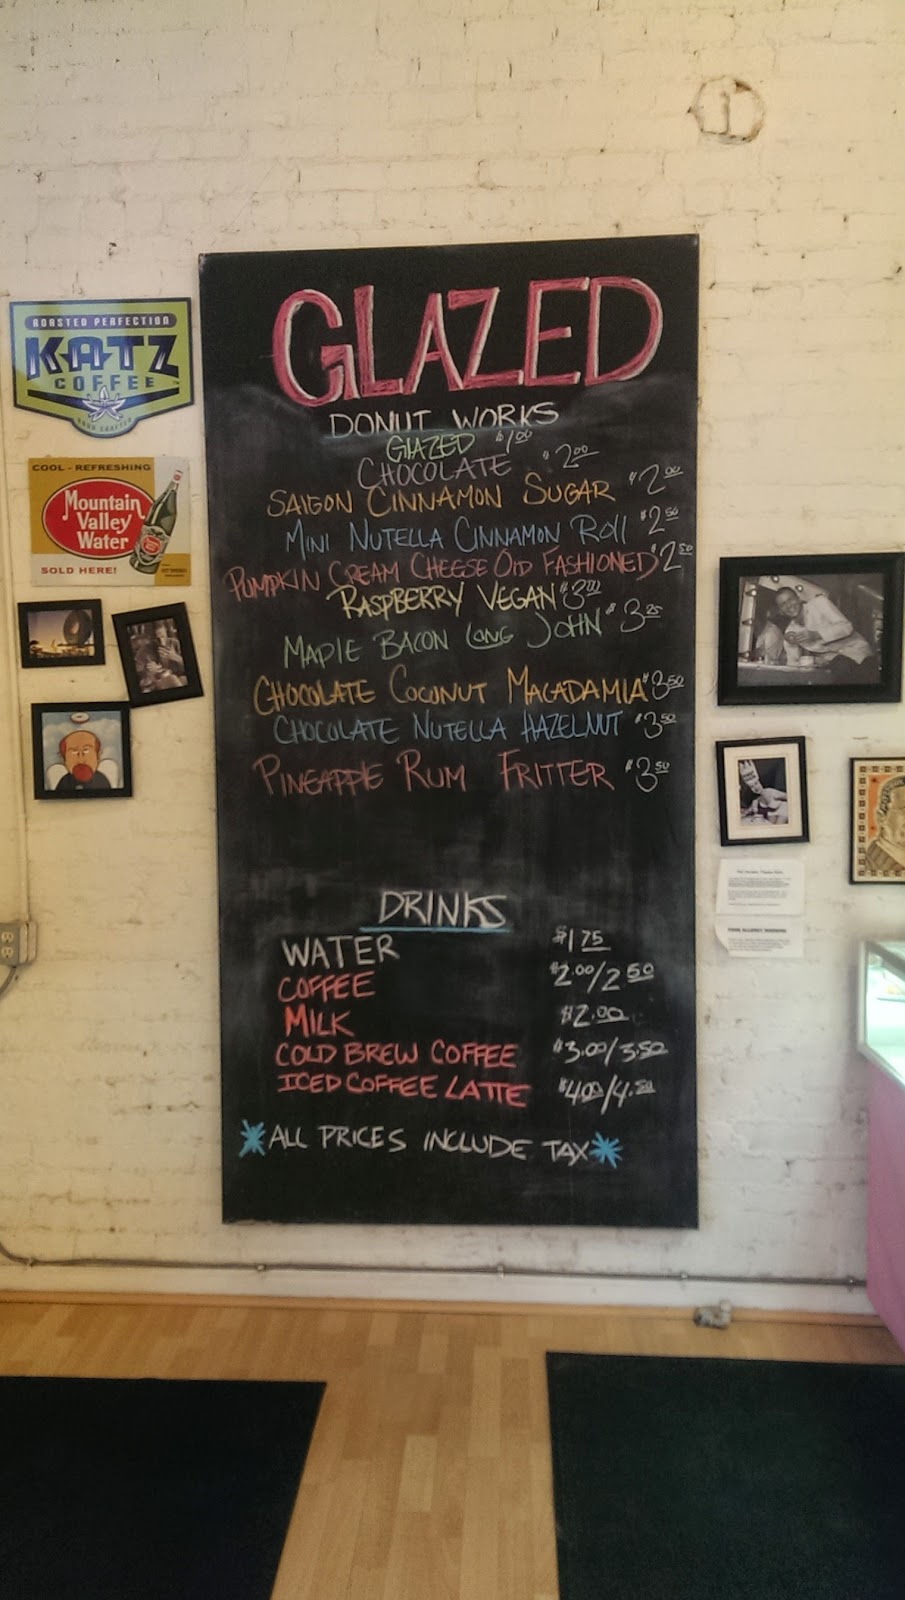 GLAZED
DONUT WORKS
GLAZED $1.00
CHOCOLATE $2.00
SAIGON CINNAMON SUGAR $2.00
MINI NUTELLA CINNAMON ROLL $2.50
PUMPKIN CREAM CHEESE OLD FASHIONED $2.50
RASPBERRY VEGAN $3.00
MAPLE BACON LONG JOHN $3.25
CHOCOLATE COCONUT MACADAMIA $3.50
CHOCOLATE NUTELLA HAZELNUT $3.50
PINEAPPLE RUM FRITTER $3.50
DRINKS
WATER $1.75
COFFEE $2.00/2.50
MILK $2.00
COLD BREW COFFEE $3.00/3.50
ICED COFFEE LATTE $4.00/4.50
*ALL PRICES INCLUDE TAX*
ROASTED PERFECTION
KATZ
COFFEE TM
HAND CRAFTED
COOL - REFRESHING
Mountain
Valley
Water
SOLD HERE!
FOOD ALLERGY WARNING